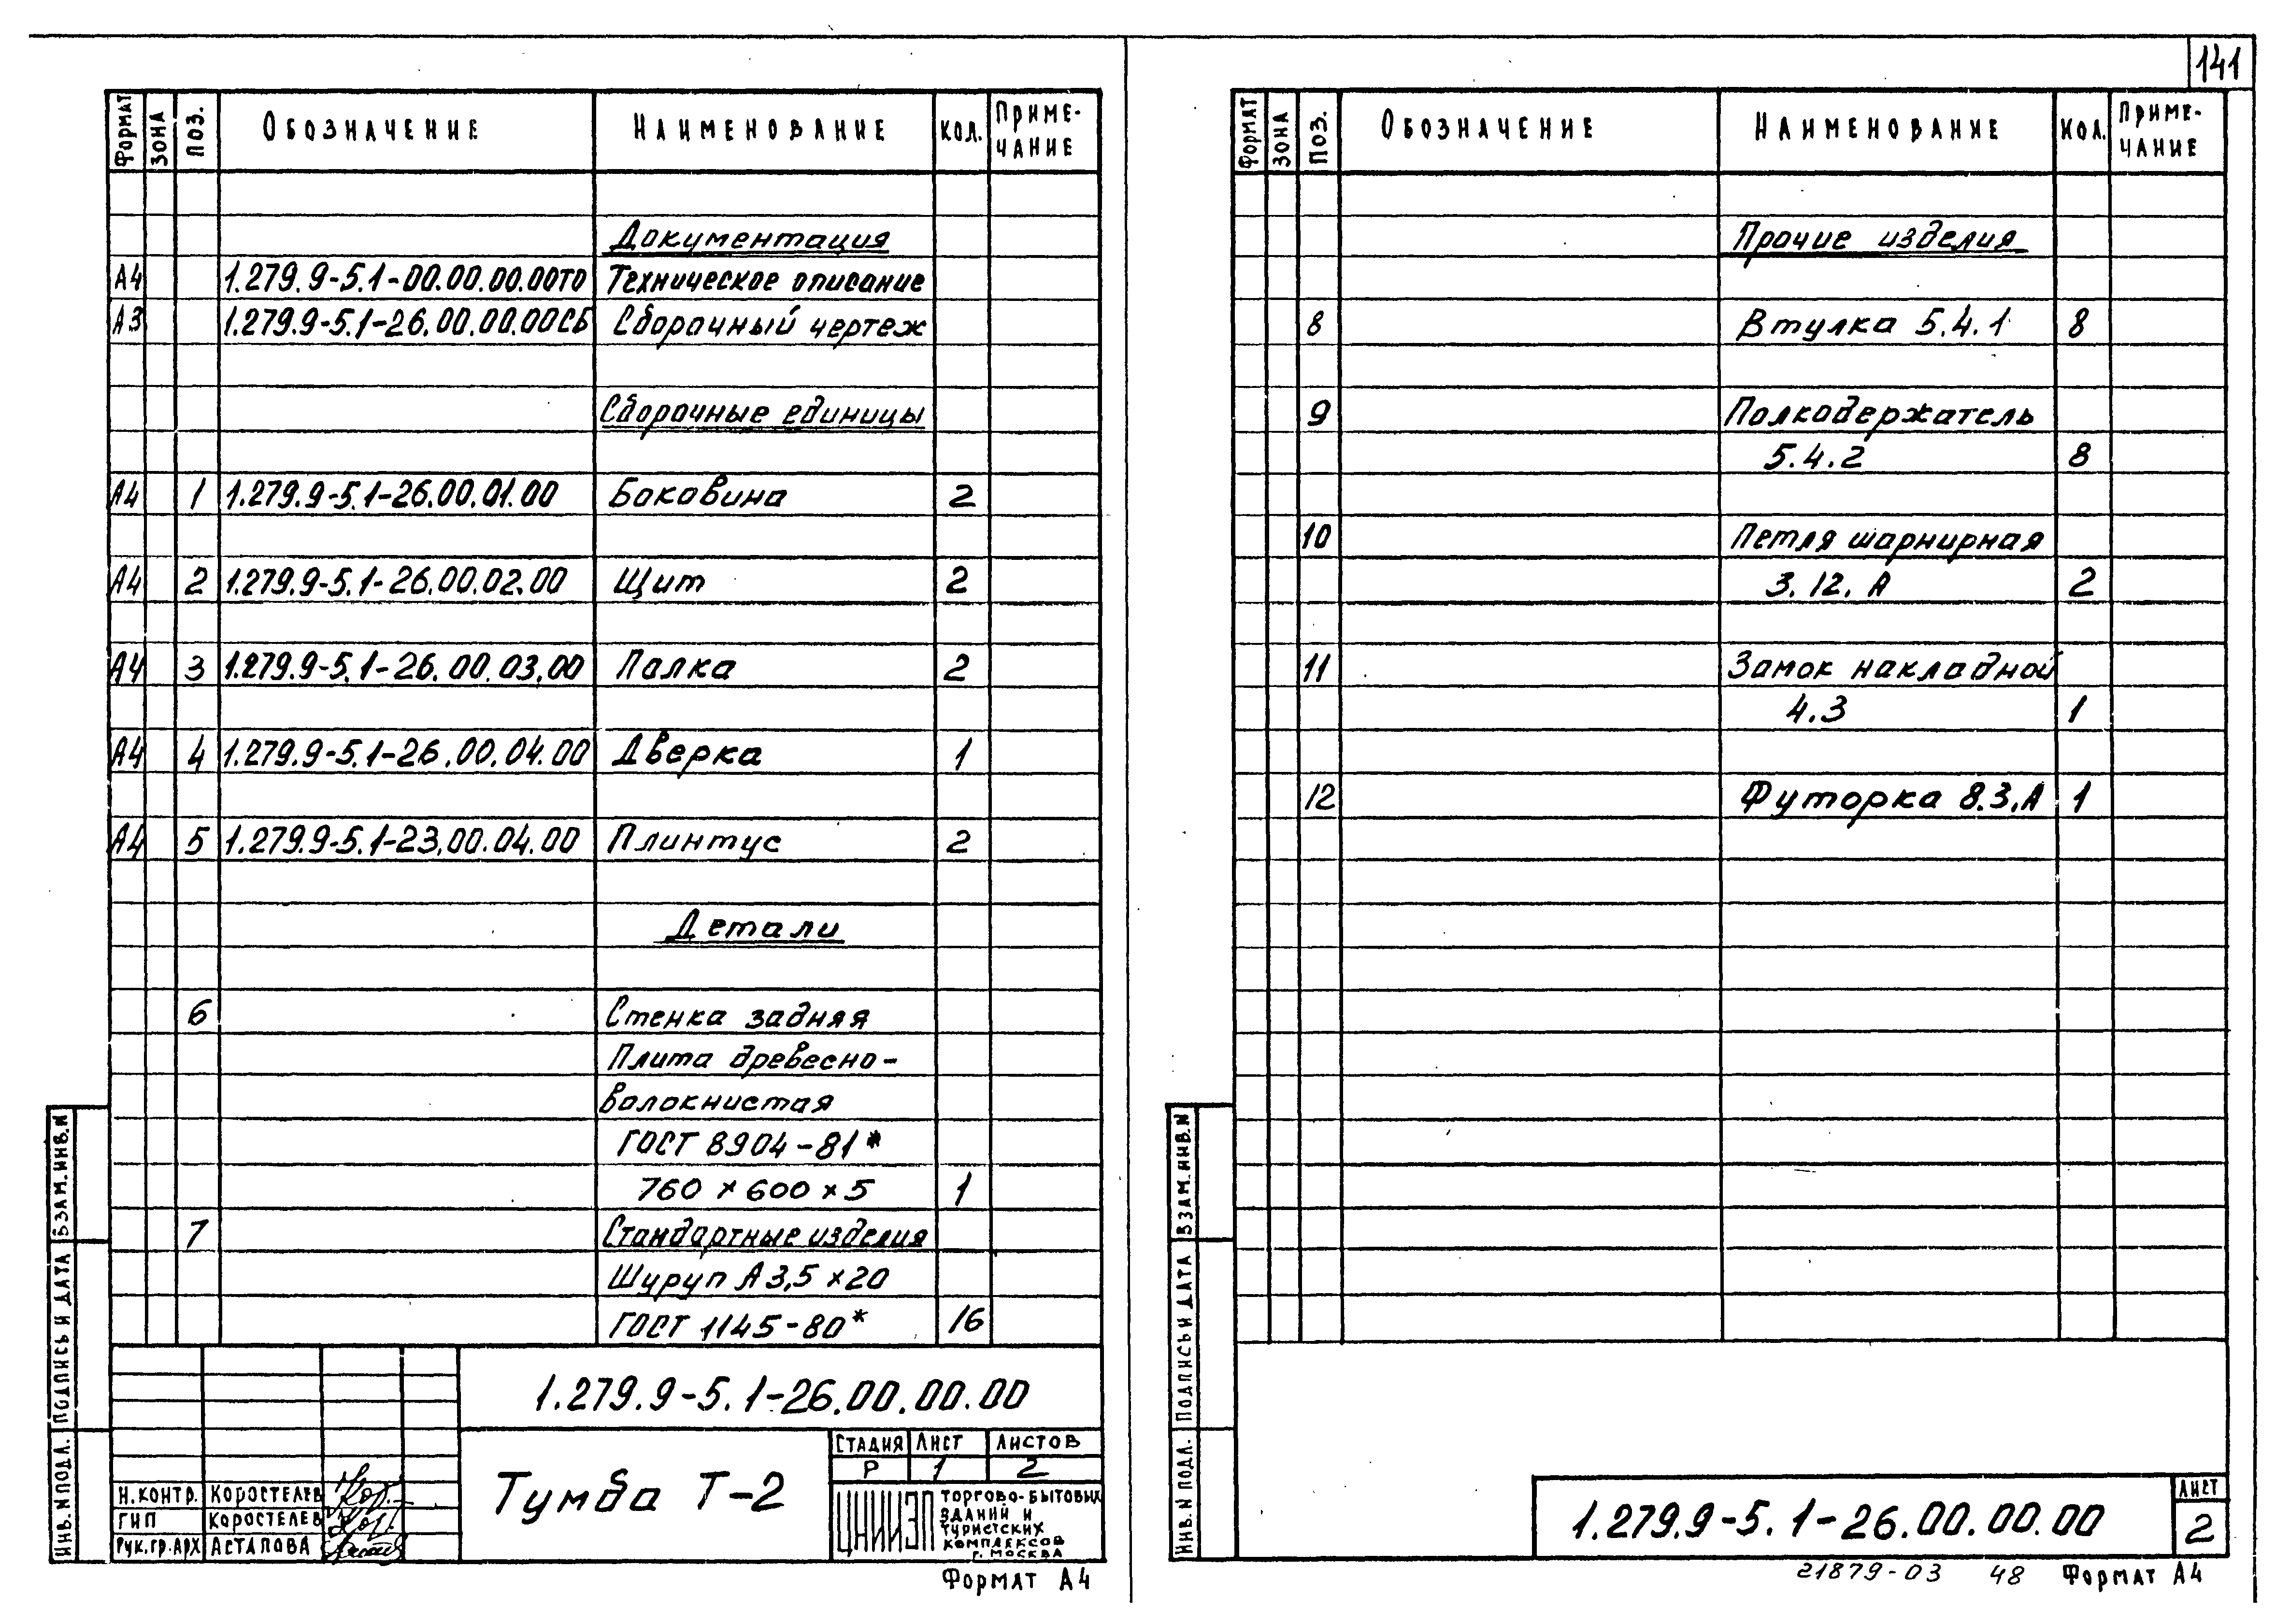 141
ФОРМАТ ЗОНА ПОЗ. ОБОЗНАЧЕНИЕ НАИМЕНОВАНИЕ КОЛ. ПРИМЕ-
ЧАНИЕ
Документация
А4 1.279.9-5.1-00.00.00.00ТО Техническое описание
А3 1.279.9-5.1-26.00.00.00СБ Сборочный чертеж
Сборочные единицы
А4 1 1.279.9-5.1-26.00.01.00 Боковина 2
А4 2 1.279.9-5.1-26.00.02.00 Щит 2
А4 3 1.279.9-5.1-26.00.03.00 Полка 2
А4 4 1.279.9-5.1-26.00.04.00 Дверка 1
А4 5 1.279.9-5.1-23.00.04.00 Плинтус 2
Детали
6 Стенка задняя
Плита древесно-
волокнистая
ГОСТ 8904-81*
760 × 600 × 5 1
7 Стандартные изделия
Шуруп А3,5×20
ГОСТ 1145-80* 16
ИНВ.N ПОДЛ. ПОДПИСЬ И ДАТА ВЗАМ.ИНВ.N
1.279.9-5.1-26.00.00.00
Тумба Т-2
СТАДИЯ ЛИСТ ЛИСТОВ
Р 1 2
Н.КОНТР. КОРОСТЕЛЕВ
ГИП КОРОСТЕЛЕВ
РУК.ГР.АРХ АСТАПОВА
ЦНИИЭП ТОРГОВО-БЫТОВЫХ
ЗДАНИЙ И
ТУРИСТСКИХ
КОМПЛЕКСОВ
Г. МОСКВА
ФОРМАТ А4
ФОРМАТ ЗОНА ПОЗ. ОБОЗНАЧЕНИЕ НАИМЕНОВАНИЕ КОЛ. ПРИМЕ-
ЧАНИЕ
Прочие изделия
8 Втулка 5.4.1 8
9 Полкодержатель
5.4.2 8
10 Петля шарнирная
3.12.А 2
11 Замок накладной
4.3 1
12 Футорка 8.3.А 1
ИНВ.N ПОДЛ. ПОДПИСЬ И ДАТА ВЗАМ.ИНВ.N
1.279.9-5.1-26.00.00.00
ЛИСТ
2
21879-03 48 ФОРМАТ А4